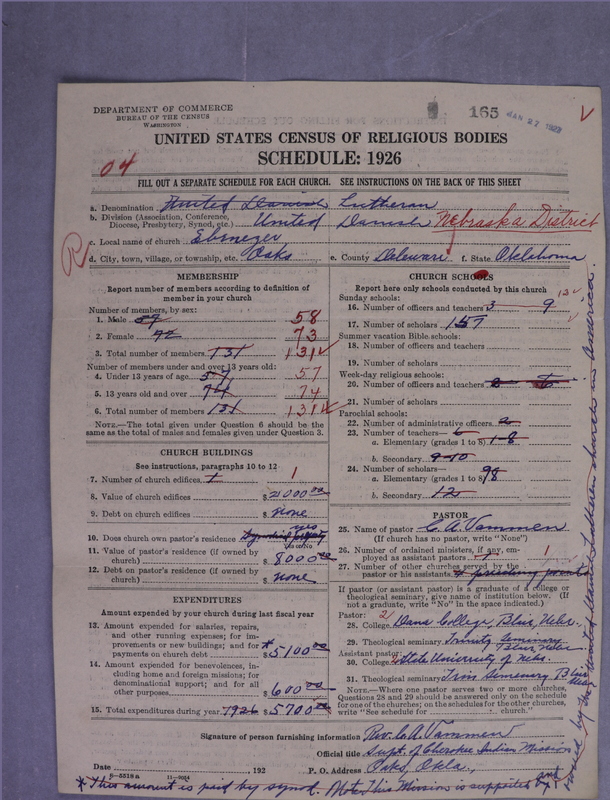 DEPARTMENT OF COMMERCE
BUREAU OF THE CENSUS
WASHINGTON
165 JAN 27 1928
UNITED STATES CENSUS OF RELIGIOUS BODIES
SCHEDULE: 1926
04
FILL OUT A SEPARATE SCHEDULE FOR EACH CHURCH. SEE INSTRUCTIONS ON THE BACK OF THIS SHEET
a. Denomination United Danish Lutheran
b. Division (Association, Conference, Diocese, Presbytery, Synod, etc.) United Danish Nebraska District
c. Local name of church Ebenezer
d. City, town, village, or township, etc. Oaks e. County Delaware f. State Oklahoma
MEMBERSHIP
Report number of members according to definition of member in your church
Number of members, by sex:
1. Male 58
2. Female 73
3. Total number of members 131 131
Number of members under and over 13 years old:
4. Under 13 years of age 57 57
5. 13 years old and over 74 74
6. Total number of members 131 131
NOTE.—The total given under Question 6 should be the same as the total of males and females given under Question 3.
CHURCH BUILDINGS
See instructions, paragraphs 10 to 12
7. Number of church edifices 1 1
8. Value of church edifices $
9. Debt on church edifices $ none
10. Does church own pastor's residence yes
(Yes or No)
11. Value of pastor's residence (if owned by church) $ 8000 00
12. Debt on pastor's residence (if owned by church) $ none
EXPENDITURES
Amount expended by your church during last fiscal year
13. Amount expended for salaries, repairs, and other running expenses; for improvements or new buildings; and for payments on church debt * $ 5100 00
14. Amount expended for benevolences, including home and foreign missions; for denominational support; and for all other purposes $ 600 00
15. Total expenditures during year 1926 $ 5700 00
CHURCH SCHOOLS
Report here only schools conducted by this church
Sunday schools:
16. Number of officers and teachers 3 9
17. Number of scholars 157
Summer vacation Bible schools:
18. Number of officers and teachers
19. Number of scholars
Week-day religious schools:
20. Number of officers and teachers
21. Number of scholars
Parochial schools:
22. Number of administrative officers 2
23. Number of teachers— 6
a. Elementary (grades 1 to 8) 1-8
b. Secondary 9-10
24. Number of scholars—
a. Elementary (grades 1 to 8) 98
b. Secondary 12
PASTOR
25. Name of pastor C. A. Vammen
(If church has no pastor, write "None")
26. Number of ordained ministers, if any, employed as assistant pastors 1
27. Number of other churches served by the pastor or his assistants 4 preaching points
If pastor (or assistant pastor) is a graduate of a college or theological seminary, give name of institution below. (If not a graduate, write "No" in the space indicated.)
Pastor:
28. College Dana College, Blair, Nebr.
29. Theological seminary Trinity Seminary Blair, Nebr
Assistant pastor:
30. College State University of Nebr.
31. Theological seminary Trin Seminary Blair Neb
NOTE.—Where one pastor serves two or more churches, Questions 28 and 29 should be answered only on the schedule for one of the churches; on the schedules for the other churches write "See schedule for church."
Signature of person furnishing information Rev. C. A. Vammen
Official title Supt. of Cherokee Indian Mission
Date 192 P. O. Address Oaks, Okla.,
8—5518a 11—9064
* This amount is paid by synod. Note. This Mission is supported and
owned by the United Danish Lutheran church in America.